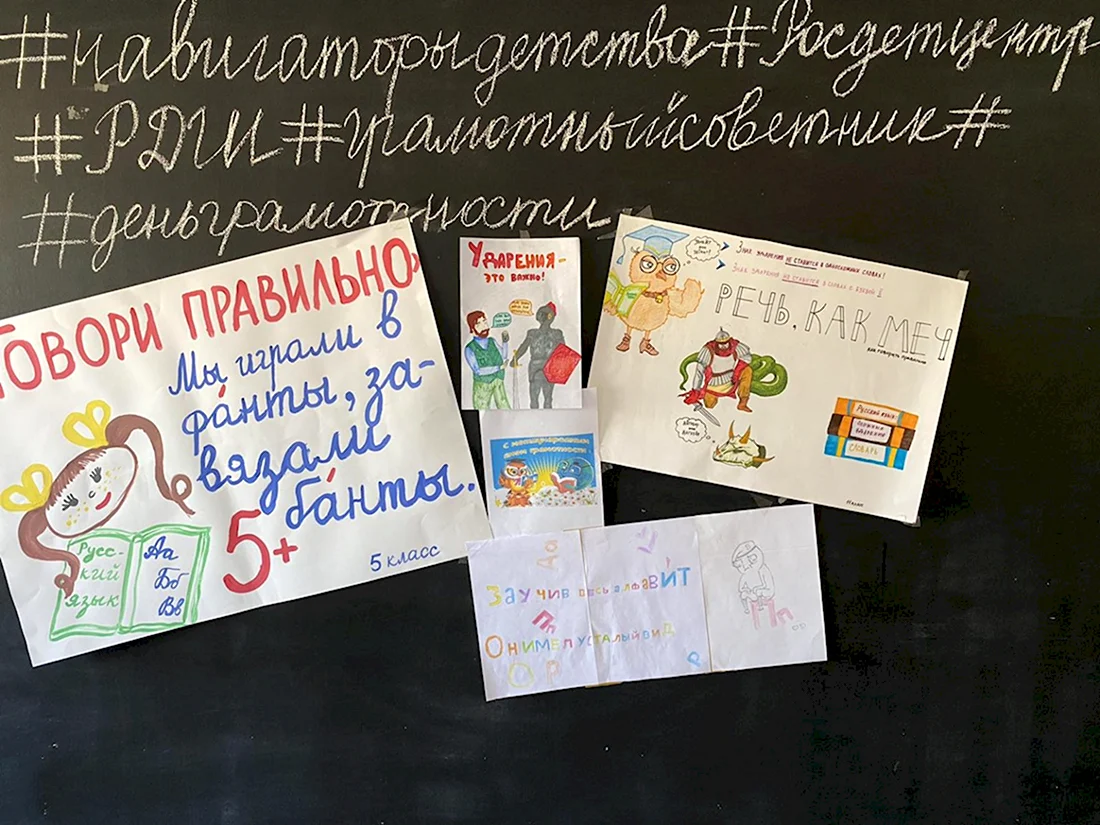 #навигаторыдетства#Росдетцентр
#РДШ#грамотныйсоветник#
#деньграмотности
ГОВОРИ ПРАВИЛЬНО
Мы играли в
фа́нты, за-
вязали
ба́нты.
5+
5 класс
Русс-
кий
язык
Аа
Бб
Вв
УДАРЕНИЯ -
ЭТО ВАЖНО!
С международным
днем грамотности!
Знак ударения не ставится в односложных словах!
Знак ударения не ставится в словах с буквой Ё
РЕЧЬ, КАК МЕЧ
как говорить правильно
Русский язык
СЛОВАРЬ
Да
ЗАУЧИВ весь алфаВИ́Т
Пп
ОН ИМЕЛ УСТАЛЫЙ ВИД
О Р
Р
Пп